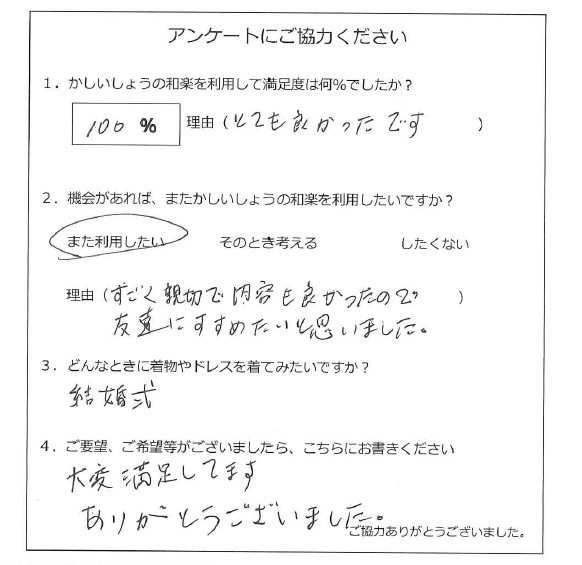 アンケートにご協力ください
1．かしいしょうの和楽を利用して満足度は何％でしたか？
100 ％ 理由（とても良かったです）
2．機会があれば、またかしいしょうの和楽を利用したいですか？
また利用したい そのとき考える したくない
理由（すごく親切で内容も良かったので）
友達にすすめたいと思いました。
3．どんなときに着物やドレスを着てみたいですか？
結婚式
4．ご要望、ご希望等がございましたら、こちらにお書きください
大変満足してます
ありがとうございました。
ご協力ありがとうございました。